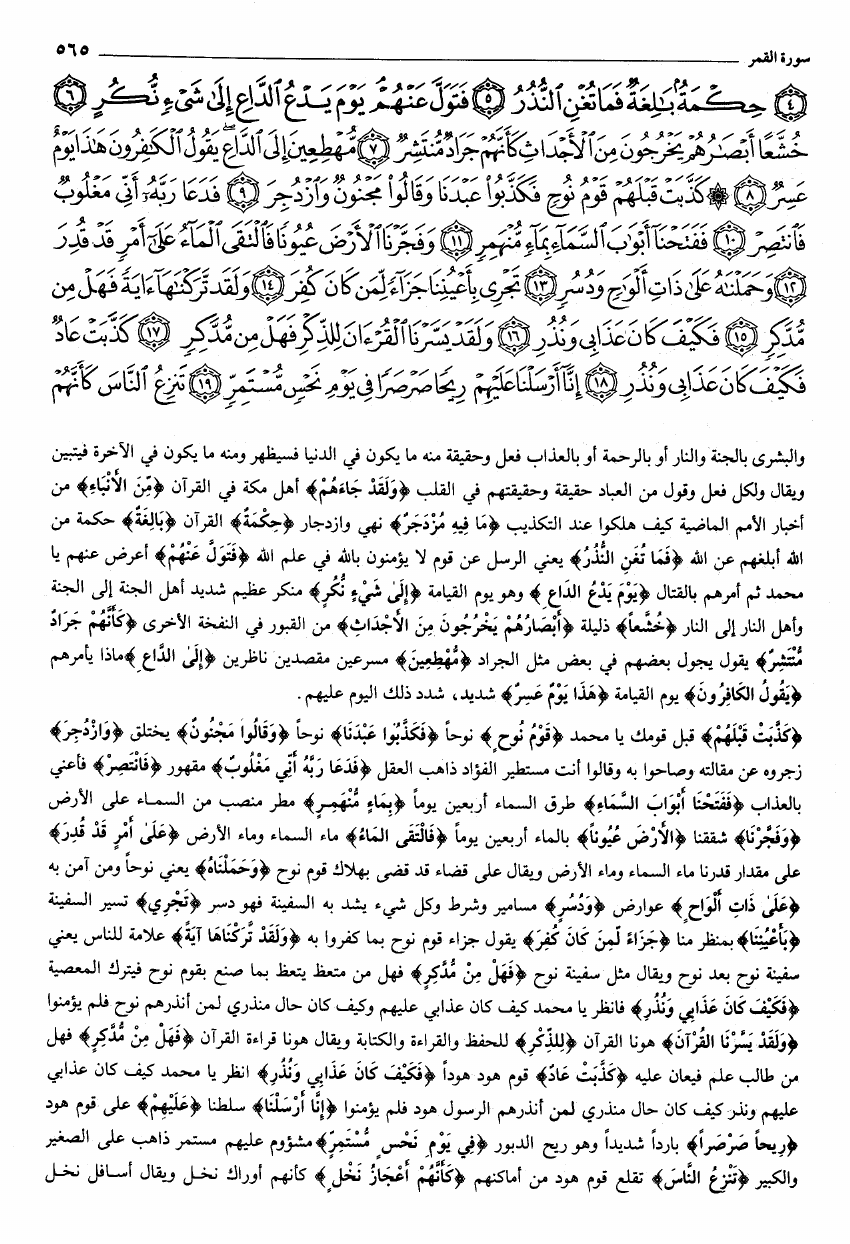 سورة القمر ٥٦٥
﴿٤﴾ حِكْمَةٌۢ بَٰلِغَةٌۖ فَمَا تُغْنِ ٱلنُّذُرُ ﴿٥﴾ فَتَوَلَّ عَنْهُمْۘ يَوْمَ يَدْعُ ٱلدَّاعِ إِلَىٰ شَىْءٍ نُّكُرٍ ﴿٦﴾
خُشَّعًا أَبْصَٰرُهُمْ يَخْرُجُونَ مِنَ ٱلْأَجْدَاثِ كَأَنَّهُمْ جَرَادٌ مُّنتَشِرٌ ﴿٧﴾ مُّهْطِعِينَ إِلَى ٱلدَّاعِۖ يَقُولُ ٱلْكَٰفِرُونَ هَٰذَا يَوْمٌ
عَسِرٌ ﴿٨﴾ ۞ كَذَّبَتْ قَبْلَهُمْ قَوْمُ نُوحٍ فَكَذَّبُوا۟ عَبْدَنَا وَقَالُوا۟ مَجْنُونٌ وَٱزْدُجِرَ ﴿٩﴾ فَدَعَا رَبَّهُۥٓ أَنِّى مَغْلُوبٌ
فَٱنتَصِرْ ﴿١٠﴾ فَفَتَحْنَآ أَبْوَٰبَ ٱلسَّمَآءِ بِمَآءٍ مُّنْهَمِرٍ ﴿١١﴾ وَفَجَّرْنَا ٱلْأَرْضَ عُيُونًا فَٱلْتَقَى ٱلْمَآءُ عَلَىٰٓ أَمْرٍ قَدْ قُدِرَ
﴿١٢﴾ وَحَمَلْنَٰهُ عَلَىٰ ذَاتِ أَلْوَٰحٍ وَدُسُرٍ ﴿١٣﴾ تَجْرِى بِأَعْيُنِنَا جَزَآءً لِّمَن كَانَ كُفِرَ ﴿١٤﴾ وَلَقَد تَّرَكْنَٰهَآ ءَايَةً فَهَلْ مِن
مُّدَّكِرٍ ﴿١٥﴾ فَكَيْفَ كَانَ عَذَابِى وَنُذُرِ ﴿١٦﴾ وَلَقَدْ يَسَّرْنَا ٱلْقُرْءَانَ لِلذِّكْرِ فَهَلْ مِن مُّدَّكِرٍ ﴿١٧﴾ كَذَّبَتْ عَادٌ
فَكَيْفَ كَانَ عَذَابِى وَنُذُرِ ﴿١٨﴾ إِنَّآ أَرْسَلْنَا عَلَيْهِمْ رِيحًا صَرْصَرًا فِى يَوْمِ نَحْسٍ مُّسْتَمِرٍّ ﴿١٩﴾ تَنزِعُ ٱلنَّاسَ كَأَنَّهُمْ
والبشرى بالجنة والنار أو بالرحمة أو بالعذاب فعل وحقيقة منه ما يكون في الدنيا فسيظهر ومنه ما يكون في الآخرة فيتبين
ويقال ولكل فعل وقول من العباد حقيقة وحقيقتهم في القلب ﴿وَلَقَدْ جَاءَهُمْ﴾ أهل مكة في القرآن ﴿مِّنَ الأَنْبَاءِ﴾ من
أخبار الأمم الماضية كيف هلكوا عند التكذيب ﴿مَا فِيهِ مُزْدَجَرٌ﴾ نهي وازدجار ﴿حِكْمَةٌ﴾ القرآن ﴿بَالِغَةٌ﴾ حكمة من
الله أبلغهم عن الله ﴿فَمَا تُغْنِ النُّذُرُ﴾ يعني الرسل عن قوم لا يؤمنون بالله في علم الله ﴿فَتَوَلَّ عَنْهُمْ﴾ أعرض عنهم يا
محمد ثم أمرهم بالقتال ﴿يَوْمَ يَدْعُ الدَاعِ﴾ وهو يوم القيامة ﴿إِلَىٰ شَيْءٍ نُّكُرٍ﴾ منكر عظيم شديد أهل الجنة إلى الجنة
وأهل النار إلى النار ﴿خُشَّعاً﴾ ذليلة ﴿أَبْصَارُهُمْ يَخْرُجُونَ مِنَ الأَجْدَاثِ﴾ من القبور في النفخة الأخرى ﴿كَأَنَّهُمْ جَرَادٌ
مُّنْتَشِرٌ﴾ يقول يجول بعضهم في بعض مثل الجراد ﴿مُّهْطِعِينَ﴾ مسرعين مقصدين ناظرين ﴿إِلَى الدَّاعِ﴾ ماذا يأمرهم
﴿يَقُولُ الكَافِرُونَ﴾ يوم القيامة ﴿هَذَا يَوْمٌ عَسِرٌ﴾ شديد، شدد ذلك اليوم عليهم.
﴿كَذَّبَتْ قَبْلَهُمْ﴾ قبل قومك يا محمد ﴿قَوْمُ نُوحٍ﴾ نوحاً ﴿فَكَذَّبُوا عَبْدَنَا﴾ نوحاً ﴿وَقَالُوا مَجْنُونٌ﴾ يختلق ﴿وَازْدُجِرَ﴾
زجروه عن مقالته وصاحوا به وقالوا أنت مستطير الفؤاد ذاهب العقل ﴿فَدَعَا رَبَّهُ أَنِّي مَغْلُوبٌ﴾ مقهور ﴿فَانْتَصِرْ﴾ فأعني
بالعذاب ﴿فَفَتَحْنَا أَبْوَابَ السَّمَاءِ﴾ طرق السماء أربعين يوماً ﴿بِمَاءٍ مُّنْهَمِرٍ﴾ مطر منصب من السماء على الأرض
﴿وَفَجَّرْنَا﴾ شققنا ﴿الأَرْضَ عُيُوناً﴾ بالماء أربعين يوماً ﴿فَالْتَقَى المَاءُ﴾ ماء السماء وماء الأرض ﴿عَلَىٰ أَمْرٍ قَدْ قُدِرَ﴾
على مقدار قدرنا ماء السماء وماء الأرض ويقال على قضاء قد قضى بهلاك قوم نوح ﴿وَحَمَلْنَاهُ﴾ يعني نوحاً ومن آمن به
﴿عَلَىٰ ذَاتِ أَلْوَاحٍ﴾ عوارض ﴿وَدُسُرٍ﴾ مسامير وشرط وكل شيء يشد به السفينة فهو دسر ﴿تَجْرِي﴾ تسير السفينة
﴿بِأَعْيُنِنَا﴾ بمنظر منا ﴿جَزَاءً لِّمَن كَانَ كُفِرَ﴾ يقول جزاء قوم نوح بما كفروا به ﴿وَلَقَدْ تَّرَكْنَاهَا آيَةً﴾ علامة للناس يعني
سفينة نوح بعد نوح ويقال مثل سفينة نوح ﴿فَهَلْ مِنْ مُّدَّكِرٍ﴾ فهل من متعظ يتعظ بما صنع بقوم نوح فيترك المعصية
﴿فَكَيْفَ كَانَ عَذَابِي وَنُذُرِ﴾ فانظر يا محمد كيف كان عذابي عليهم وكيف كان حال منذري لمن أنذرهم نوح فلم يؤمنوا
﴿وَلَقَدْ يَسَّرْنَا القُرْآنَ﴾ هونا القرآن ﴿لِلذِّكْرِ﴾ للحفظ والقراءة والكتابة ويقال هونا قراءة القرآن ﴿فَهَلْ مِنْ مُّدَّكِرٍ﴾ فهل
من طالب علم فيعان عليه ﴿كَذَّبَتْ عَادٌ﴾ قوم هود هوداً ﴿فَكَيْفَ كَانَ عَذَابِي وَنُذُرِ﴾ انظر يا محمد كيف كان عذابي
عليهم ونذر كيف كان حال منذري لمن أنذرهم الرسول هود فلم يؤمنوا ﴿إِنَّا أَرْسَلْنَا﴾ سلطنا ﴿عَلَيْهِمْ﴾ على قوم هود
﴿رِيحاً صَرْصَراً﴾ بارداً شديداً وهو ريح الدبور ﴿فِي يَوْمِ نَحْسٍ مُّسْتَمِرٍّ﴾ مشؤوم عليهم مستمر ذاهب على الصغير
والكبير ﴿تَنْزِعُ النَّاسَ﴾ تقلع قوم هود من أماكنهم ﴿كَأَنَّهُمْ أَعْجَازُ نَخْلٍ﴾ كأنهم أوراك نخل ويقال أسافل نخل